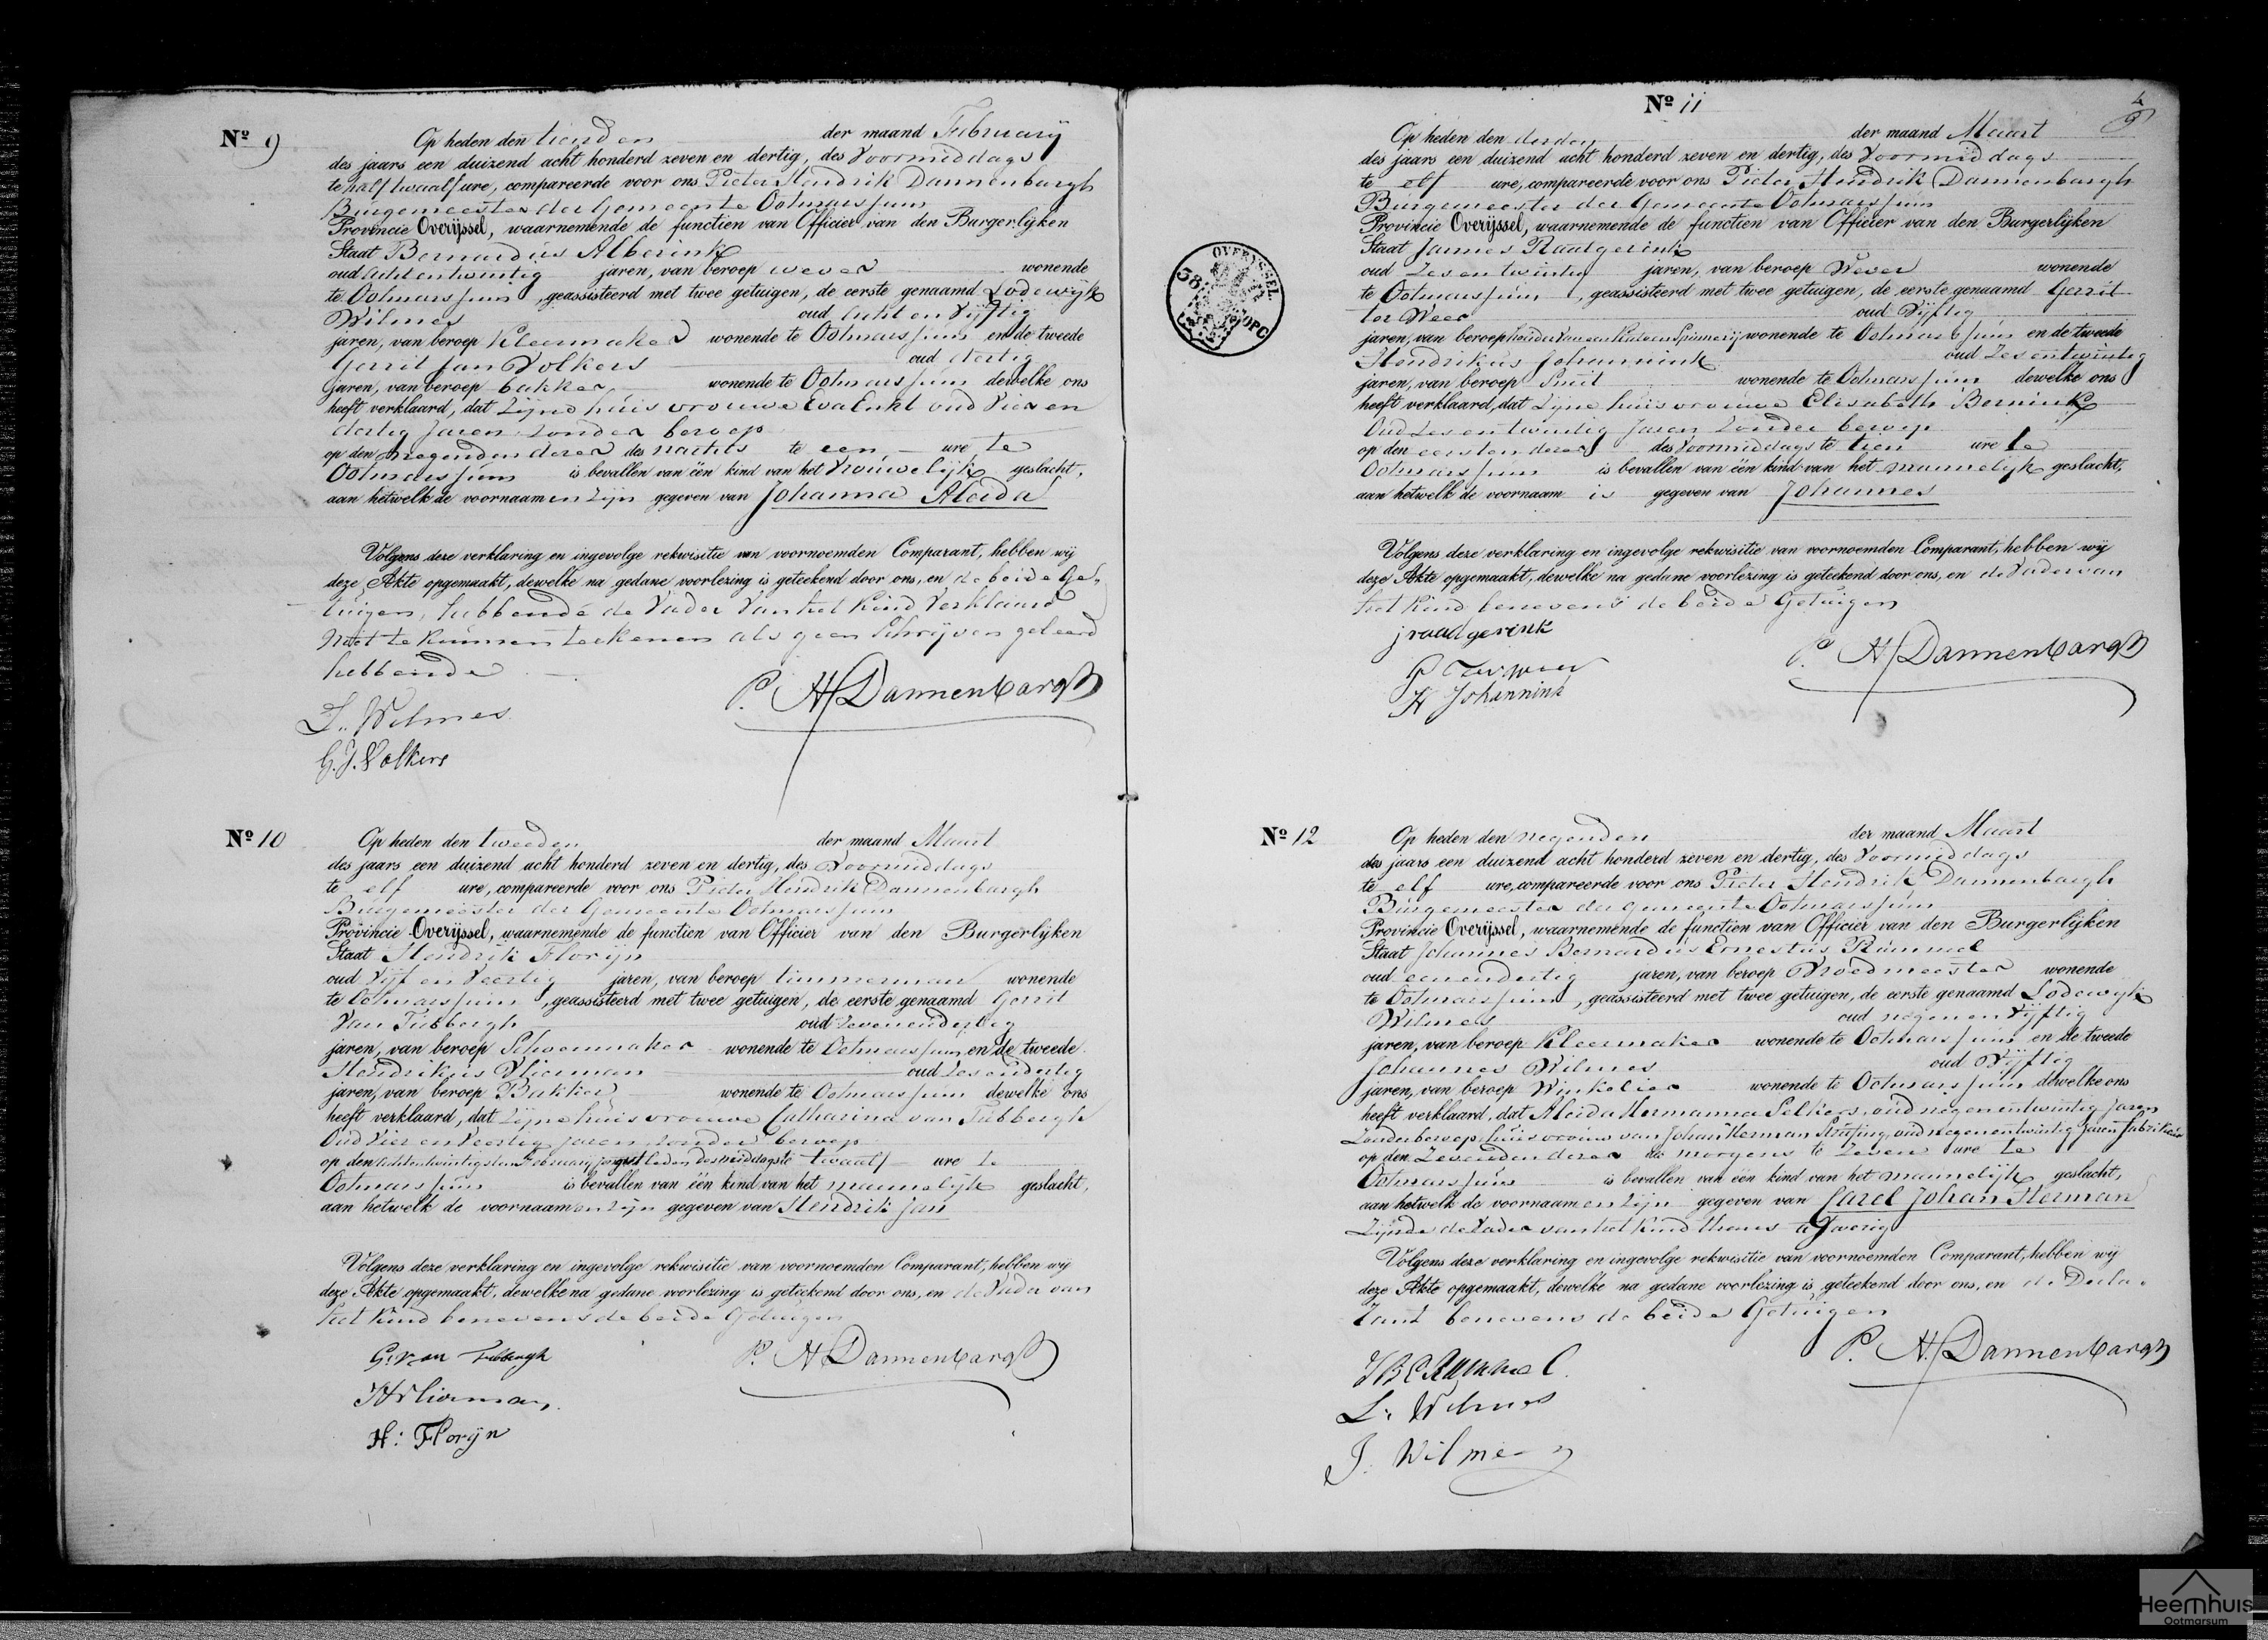 Nº 9
Op heden den tienden der maand February
des jaars een duizend acht honderd zeven en dertig, des Voormiddags
te half twaalf ure, compareerde voor ons Pieter Hendrik Dannenbargh
Burgemeester der Gemeente Ootmarssum
Provincie Overijssel, waarnemende de functien van Officier van den Burgerlijken
Staat Bernardus Alberink
oud achtentwintig jaren, van beroep wever wonende
te Ootmarssum, geassisteerd met twee getuigen, de eerste genaamd Lodewijk
Wilmes oud acht en Vijftig
jaren, van beroep Kleermaker wonende te Ootmarssum en de tweede
Gerrit Jan Volkers oud dertig
jaren, van beroep bakker wonende te Ootmarssum dewelke ons
heeft verklaard, dat Zijne huisvrouwe Eva Enkt oud Vier en
dertig Jaren Zonder beroep
op den negenden dezer des nachts te een ure te
Ootmarssum is bevallen van één kind van het Vrouwelijk geslacht,
aan hetwelk de voornaamen zijn gegeven van Johanna Aleida
Volgens deze verklaring en ingevolge rekwisitie van voornoemden Comparant, hebben wij
deze Akte opgemaakt, dewelke na gedane voorlezing is geteekend door ons, en de beide Ge-
tuigen, hebbende de Vader Van het Kind Verklaard
niet te kunnen teekenen als geen Schrijven geleerd
hebbende
L. Wilmes
P. H. Dannenbargh
G. J. Volkers
Nº 10
Op heden den tweeden der maand Maart
des jaars een duizend acht honderd zeven en dertig, des Voormiddags
te elf ure, compareerde voor ons Pieter Hendrik Dannenbargh
Burgemeester der Gemeente Ootmarssum
Provincie Overijssel, waarnemende de functien van Officier van den Burgerlijken
Staat Hendrik Florijn
oud Vijf en Veertig jaren, van beroep timmerman wonende
te Ootmarssum, geassisteerd met twee getuigen, de eerste genaamd Gerrit
Van Tubbergh oud Zevenendertig
jaren, van beroep Schoenmaker wonende te Ootmarssum en de tweede
Hendrikus Vlierman oud Zesendertig
jaren, van beroep Bakker wonende te Ootmarssum dewelke ons
heeft verklaard, dat Zijne huisvrouwe Catharina van Tubbergh
Oud Vier en Veertig Jaren zonder beroep
op den achtentwintigsten February jongstleden des middags te twaalf ure te
Ootmarssum is bevallen van één kind van het mannelijk geslacht,
aan hetwelk de voornaamen zijn gegeven van Hendrik Jan
Volgens deze verklaring en ingevolge rekwisitie van voornoemden Comparant, hebben wij
deze Akte opgemaakt, dewelke na gedane voorlezing is geteekend door ons, en de Vader van
het Kind benevens de beide Getuigen
G. van Tubbergh
P. H. Dannenbargh
H Vlierman
H: Florijn
Nº 11
Op heden den derden der maand Maart
des jaars een duizend acht honderd zeven en dertig, des Voormiddags
te elf ure, compareerde voor ons Pieter Hendrik Dannenbargh
Burgemeester der Gemeente Ootmarssum
Provincie Overijssel, waarnemende de functien van Officier van den Burgerlijken
Staat Jannes Raadgerink
oud Zesentwintig jaren, van beroep Wever wonende
te Ootmarssum, geassisteerd met twee getuigen, de eerste genaamd Gerrit
ter Weer oud Vijftig
jaren, van beroep houder van een Katoen Spinnerij wonende te Ootmarssum en de tweede
Hendrikus Johannink oud Zesentwintig
jaren, van beroep Smit wonende te Ootmarssum dewelke ons
heeft verklaard, dat Zijne huisvrouwe Elisabeth Bernink
Oud Zesentwintig Jaren Zonder beroep
op den eersten dezer des Voormiddags te tien ure te
Ootmarssum is bevallen van één kind van het mannelijk geslacht,
aan hetwelk de voornaam is gegeven van Johannes
Volgens deze verklaring en ingevolge rekwisitie van voornoemden Comparant, hebben wij
deze Akte opgemaakt, dewelke na gedane voorlezing is geteekend door ons, en de Vader van
het Kind benevens de beide Getuigen
j raadgerink
P. H. Dannenbargh
G Terweer
H Johannink
OVERYSSEL
38
Nº 12
Op heden den negenden der maand Maart
des jaars een duizend acht honderd zeven en dertig, des Voormiddags
te elf ure, compareerde voor ons Pieter Hendrik Dannenbargh
Burgemeester der Gemeente Ootmarssum
Provincie Overijssel, waarnemende de functien van Officier van den Burgerlijken
Staat Johannes Bernardus Ernestus Rummel
oud eenendertig jaren, van beroep Vroedmeester wonende
te Ootmarssum, geassisteerd met twee getuigen, de eerste genaamd Lodewijk
Wilmes oud negen en Vijftig
jaren, van beroep Kleermaker wonende te Ootmarssum en de tweede
Johannes Wilmes oud Vijftig
jaren, van beroep Winkelier wonende te Ootmarssum dewelke ons
heeft verklaard, dat Aleida Hermanna Selkers, oud negenentwintig Jaren
Zonder beroep huisvrouw van Johan Herman Strüfing, oud negenentwintig Jaren fabrikeur
op den Zevenden dezer des morgens te Zeven ure te
Ootmarssum is bevallen van één kind van het mannelijk geslacht,
aan hetwelk de voornaamen zijn gegeven van Carel Johan Herman
Zijnde de Vader van het Kind thans afwezig
Volgens deze verklaring en ingevolge rekwisitie van voornoemden Comparant, hebben wij
deze Akte opgemaakt, dewelke na gedane voorlezing is geteekend door ons, en de Decla-
rant benevens de beide Getuigen
J B E Rummel
P. H. Dannenbargh
L. Wilmes
J. Wilmes
Heemhuis
Ootmarsum